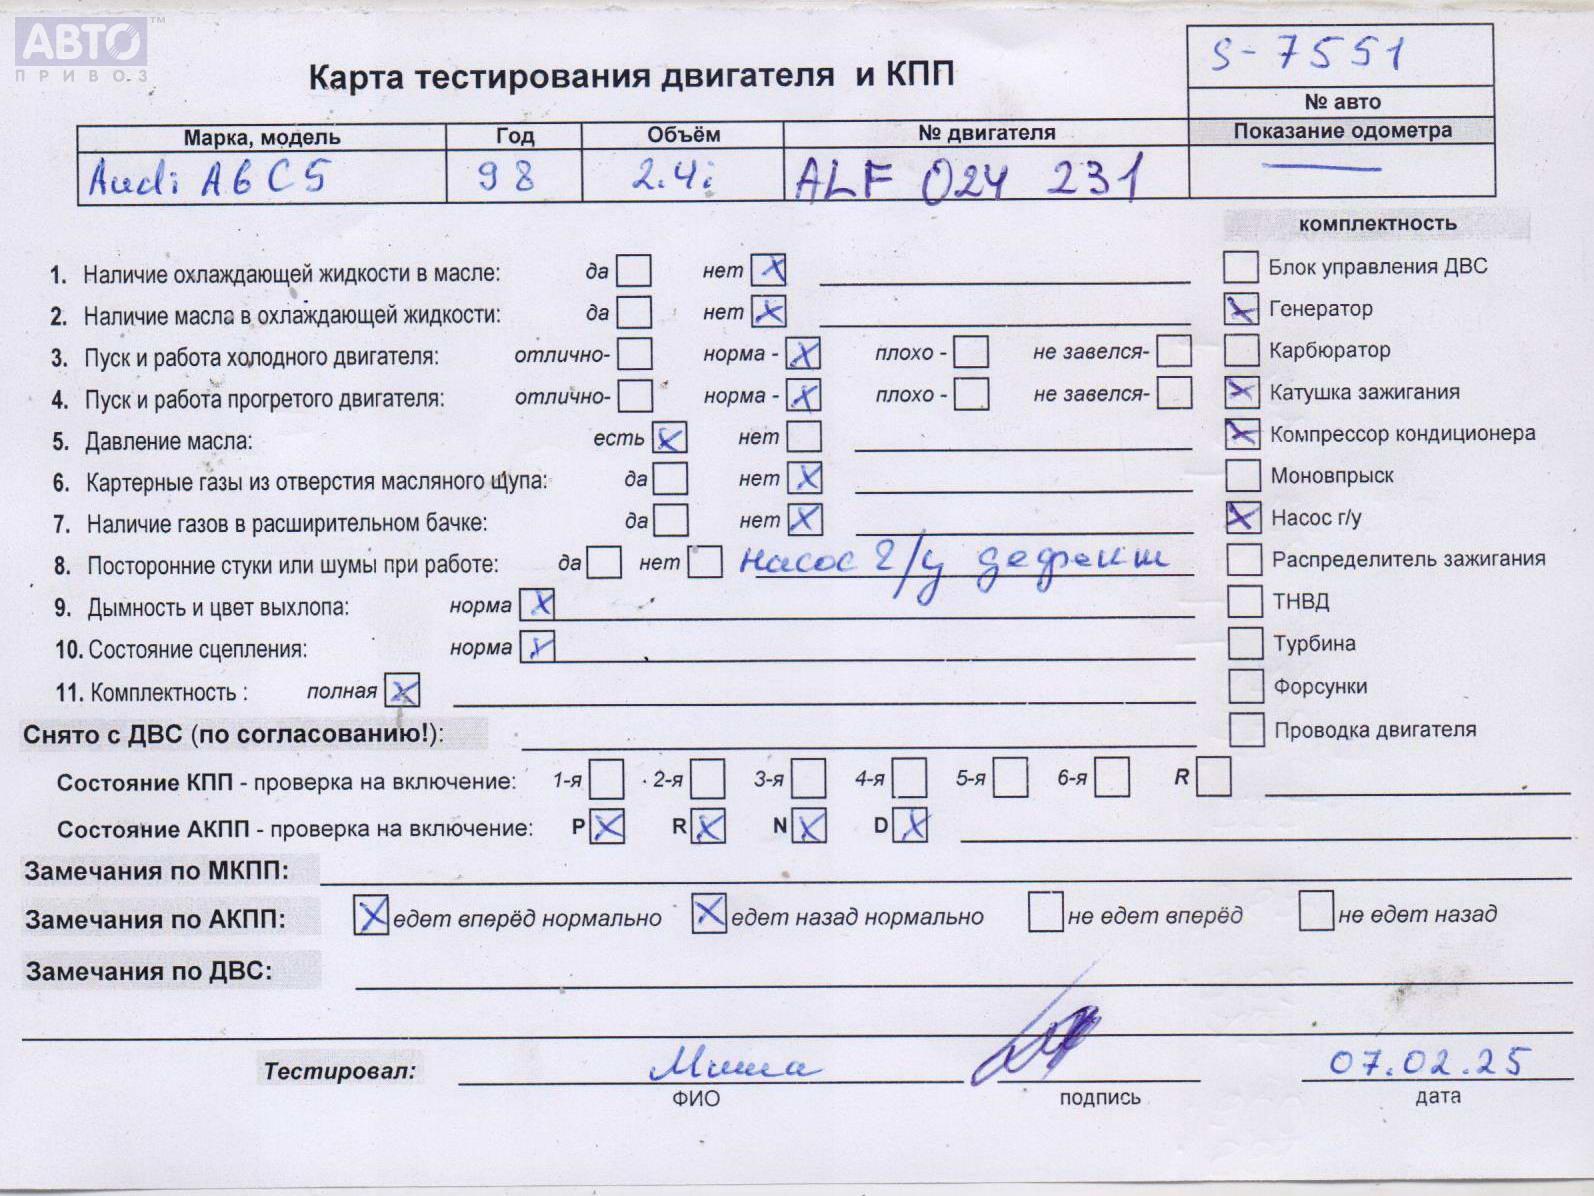 АВТО™
ПРИВОЗ
Карта тестирования двигателя и КПП
S-7551
№ авто
Марка, модель Год Объём № двигателя Показание одометра
Audi A6 C5 98 2.4i ALF 024 231 —
комплектность
1. Наличие охлаждающей жидкости в масле: да нет X
Блок управления ДВС
2. Наличие масла в охлаждающей жидкости: да нет X
X Генератор
3. Пуск и работа холодного двигателя: отлично- норма - X плохо - не завелся-
Карбюратор
4. Пуск и работа прогретого двигателя: отлично- норма - X плохо - не завелся-
X Катушка зажигания
5. Давление масла: есть X нет
X Компрессор кондиционера
6. Картерные газы из отверстия масляного щупа: да нет X
Моновпрыск
7. Наличие газов в расширительном бачке: да нет X
X Насос г/у
8. Посторонние стуки или шумы при работе: да нет насос г/у дефект
Распределитель зажигания
9. Дымность и цвет выхлопа: норма X
ТНВД
10. Состояние сцепления: норма X
Турбина
11. Комплектность : полная X
Форсунки
Снято с ДВС (по согласованию!):
Проводка двигателя
Состояние КПП - проверка на включение: 1-я 2-я 3-я 4-я 5-я 6-я R
Состояние АКПП - проверка на включение: P X R X N X D X
Замечания по МКПП:
Замечания по АКПП: X едет вперёд нормально X едет назад нормально не едет вперёд не едет назад
Замечания по ДВС:
Тестировал: Миша 07.02.25
ФИО подпись дата